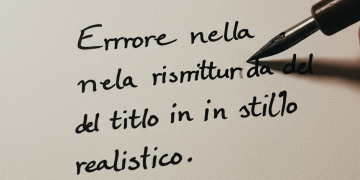 Errrore nella
nela rismittunda del
del titlo in in stillo
realistico.